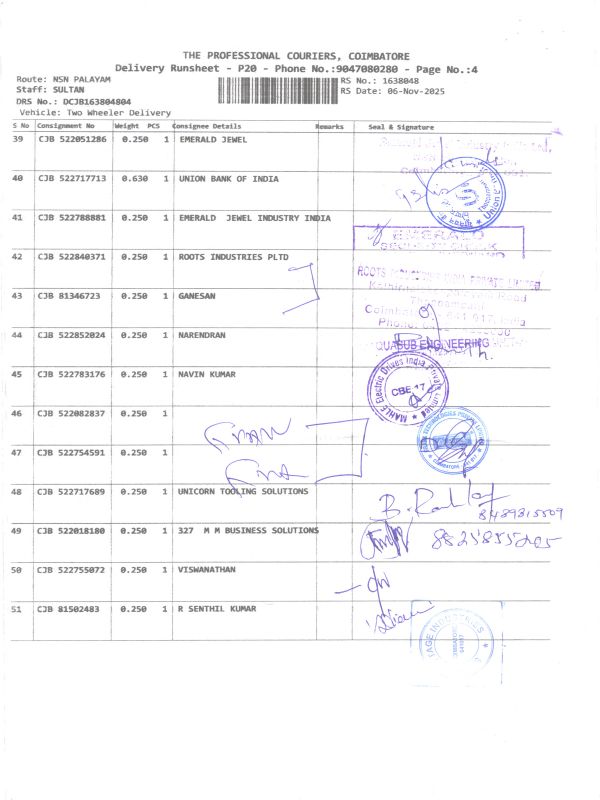 THE PROFESSIONAL COURIERS, COIMBATORE
Delivery Runsheet - P20 - Phone No.:9047080280 - Page No.:4
Route: NSN PALAYAM
RS No.: 1638048
Staff: SULTAN
RS Date: 06-Nov-2025
DRS No.: DCJB163804804
Vehicle: Two Wheeler Delivery
S No Consignment No Weight PCS Consignee Details Remarks Seal & Signature
39 CJB 522051286 0.250 1 EMERALD JEWEL
40 CJB 522717713 0.630 1 UNION BANK OF INDIA
41 CJB 522788881 0.250 1 EMERALD JEWEL INDUSTRY INDIA
EMERALD
42 CJB 522840371 0.250 1 ROOTS INDUSTRIES PLTD
ROOTS INDUSTRIES INDIA PRIVATE LIMITED
43 CJB 81346723 0.250 1 GANESAN
44 CJB 522852024 0.250 1 NARENDRAN
QUASUB ENGINEERING
45 CJB 522783176 0.250 1 NAVIN KUMAR
MAHLE Electric Drives India Private Limited
CBE-17
46 CJB 522082837 0.250 1
47 CJB 522754591 0.250 1
48 CJB 522717689 0.250 1 UNICORN TOOLING SOLUTIONS
8489315509
49 CJB 522018180 0.250 1 327 M M BUSINESS SOLUTIONS
8825855205
50 CJB 522755072 0.250 1 VISWANATHAN
51 CJB 81502483 0.250 1 R SENTHIL KUMAR
PAGE INDUSTRIES
COIMBATORE